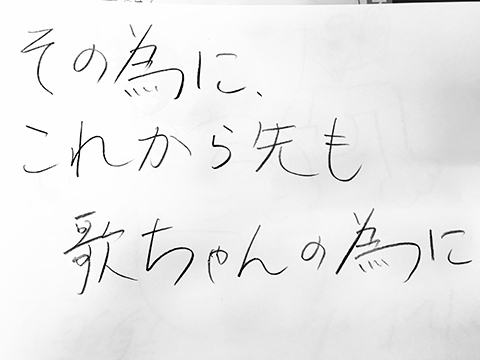 その為に、
これから先も
歌ちゃんの為に